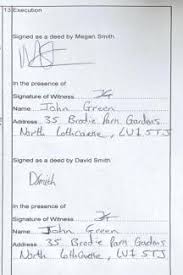 13 Execution
Signed as a deed by Megan Smith
In the presence of
Signature of Witness
Name John Green
Address 35 Brodie Parn Gardens
North , LU1 5TJ
Signed as a deed by David Smith
DSmith
In the presence of
Signature of Witness
Name John Green
Address 35 Brodie Parn Gardens
North , LU1 5TJ